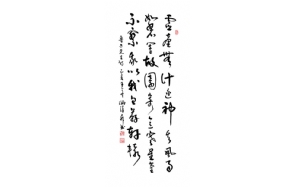 靈臺無計逃神矢風雨
如磐闇故園寄意寒星荃
不察我以我血薦軒轅